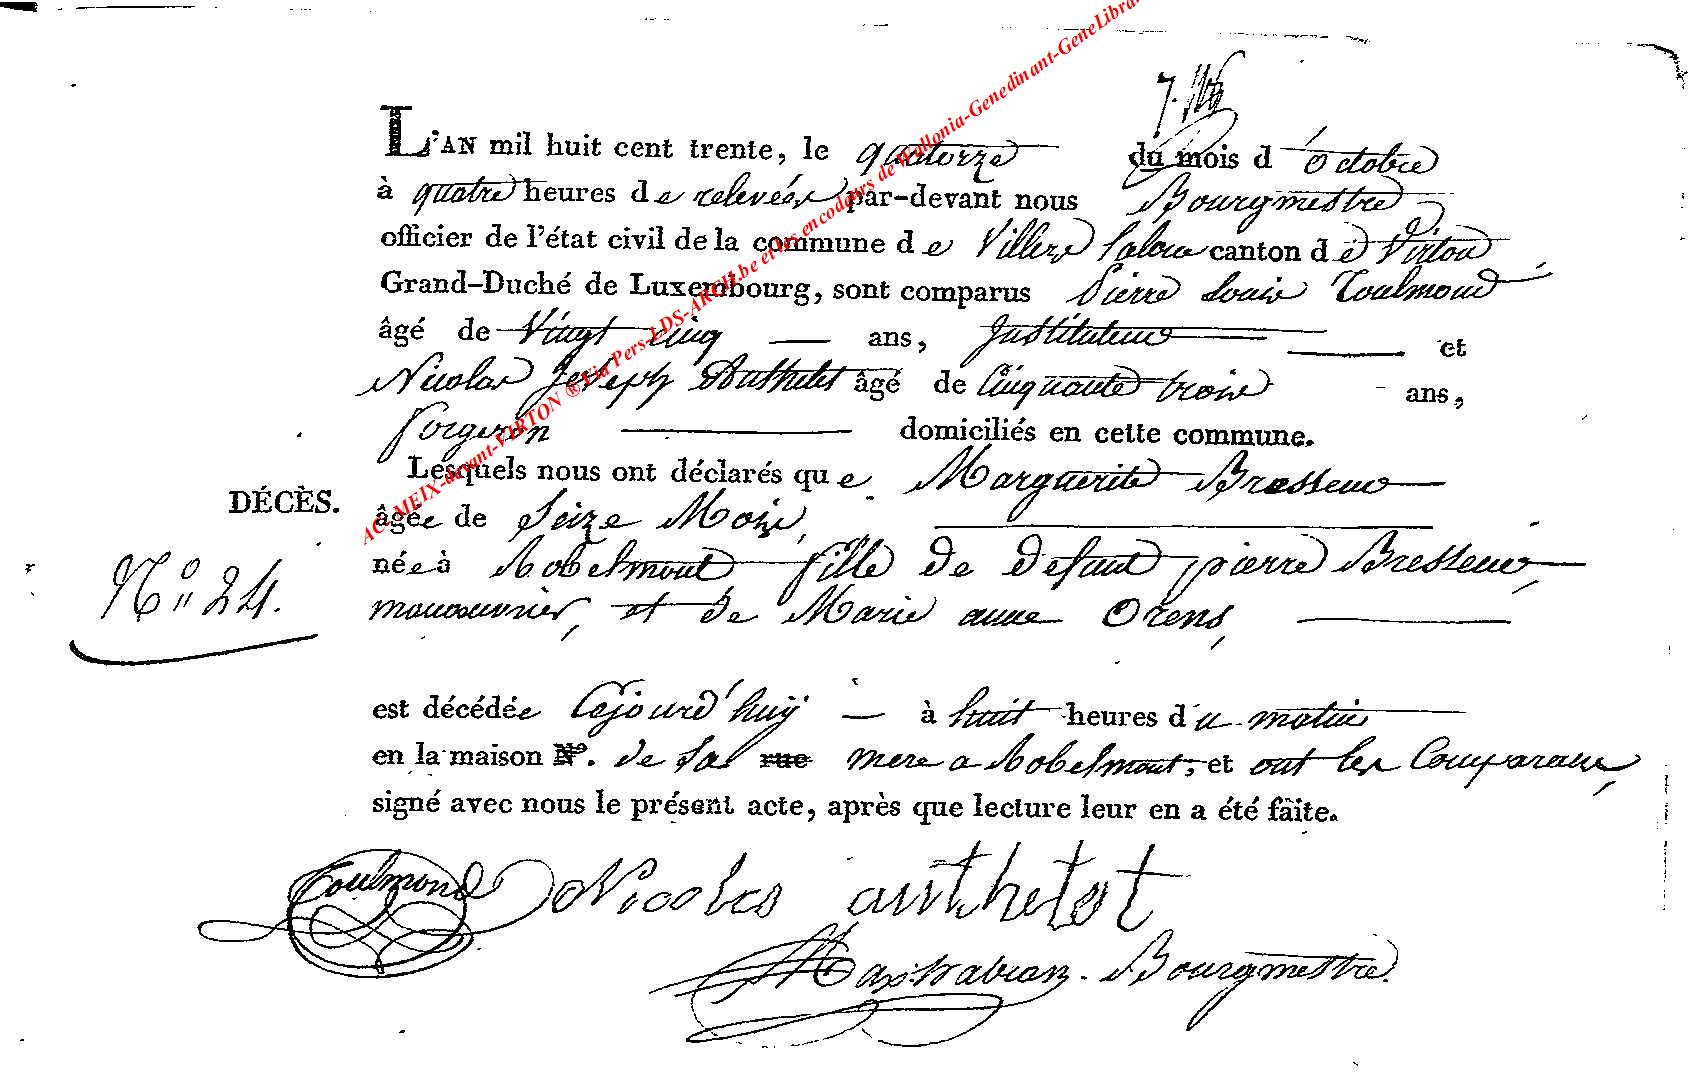 L'AN mil huit cent trente, le quatorze du mois d'octobre
à quatre heures de relevées par-devant nous Bourgmestre
officier de l'état civil de la commune de Villers la loue canton de Virton
Grand-Duché de Luxembourg, sont comparus Pierre Louis Toulmond
âgé de Vingt cinq ans, Instituteur et
Nicolas Joseph Authelet âgé de Cinquante trois ans,
forgeron domiciliés en cette commune.
Lesquels nous ont déclarés que Marguerite Bresseur
DÉCÈS.
âgée de Seize Mois,
N° 24.
née à Robelmont fille de défunt pierre Bresseur,
manouvrier, et de Marie anne Orens,
est décédée Cejourd'huy à huit heures du matin
en la maison N°. de sa rue mere a Robelmont, et ont les Comparans,
signé avec nous le présent acte, après que lecture leur en a été faite.
Toulmond Nicolas authelot
Bourgmestre.
AC-MEIX-devant-VIRTON ® Via Pers-LDS-ARCH.be et les encodeurs de Wallonia-Genedinant-GeneLibra